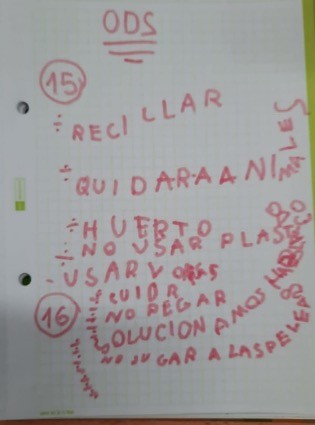 ODS
15
÷ RECILLAR
÷ QUIDARAANIMALES
÷ HUERTO
÷ NO USAR PLASTICO
- USAR
÷ CUIDR
16
NO PEGAR
SOLUCIONAMOS
NO JUGAR A LASPELEAS